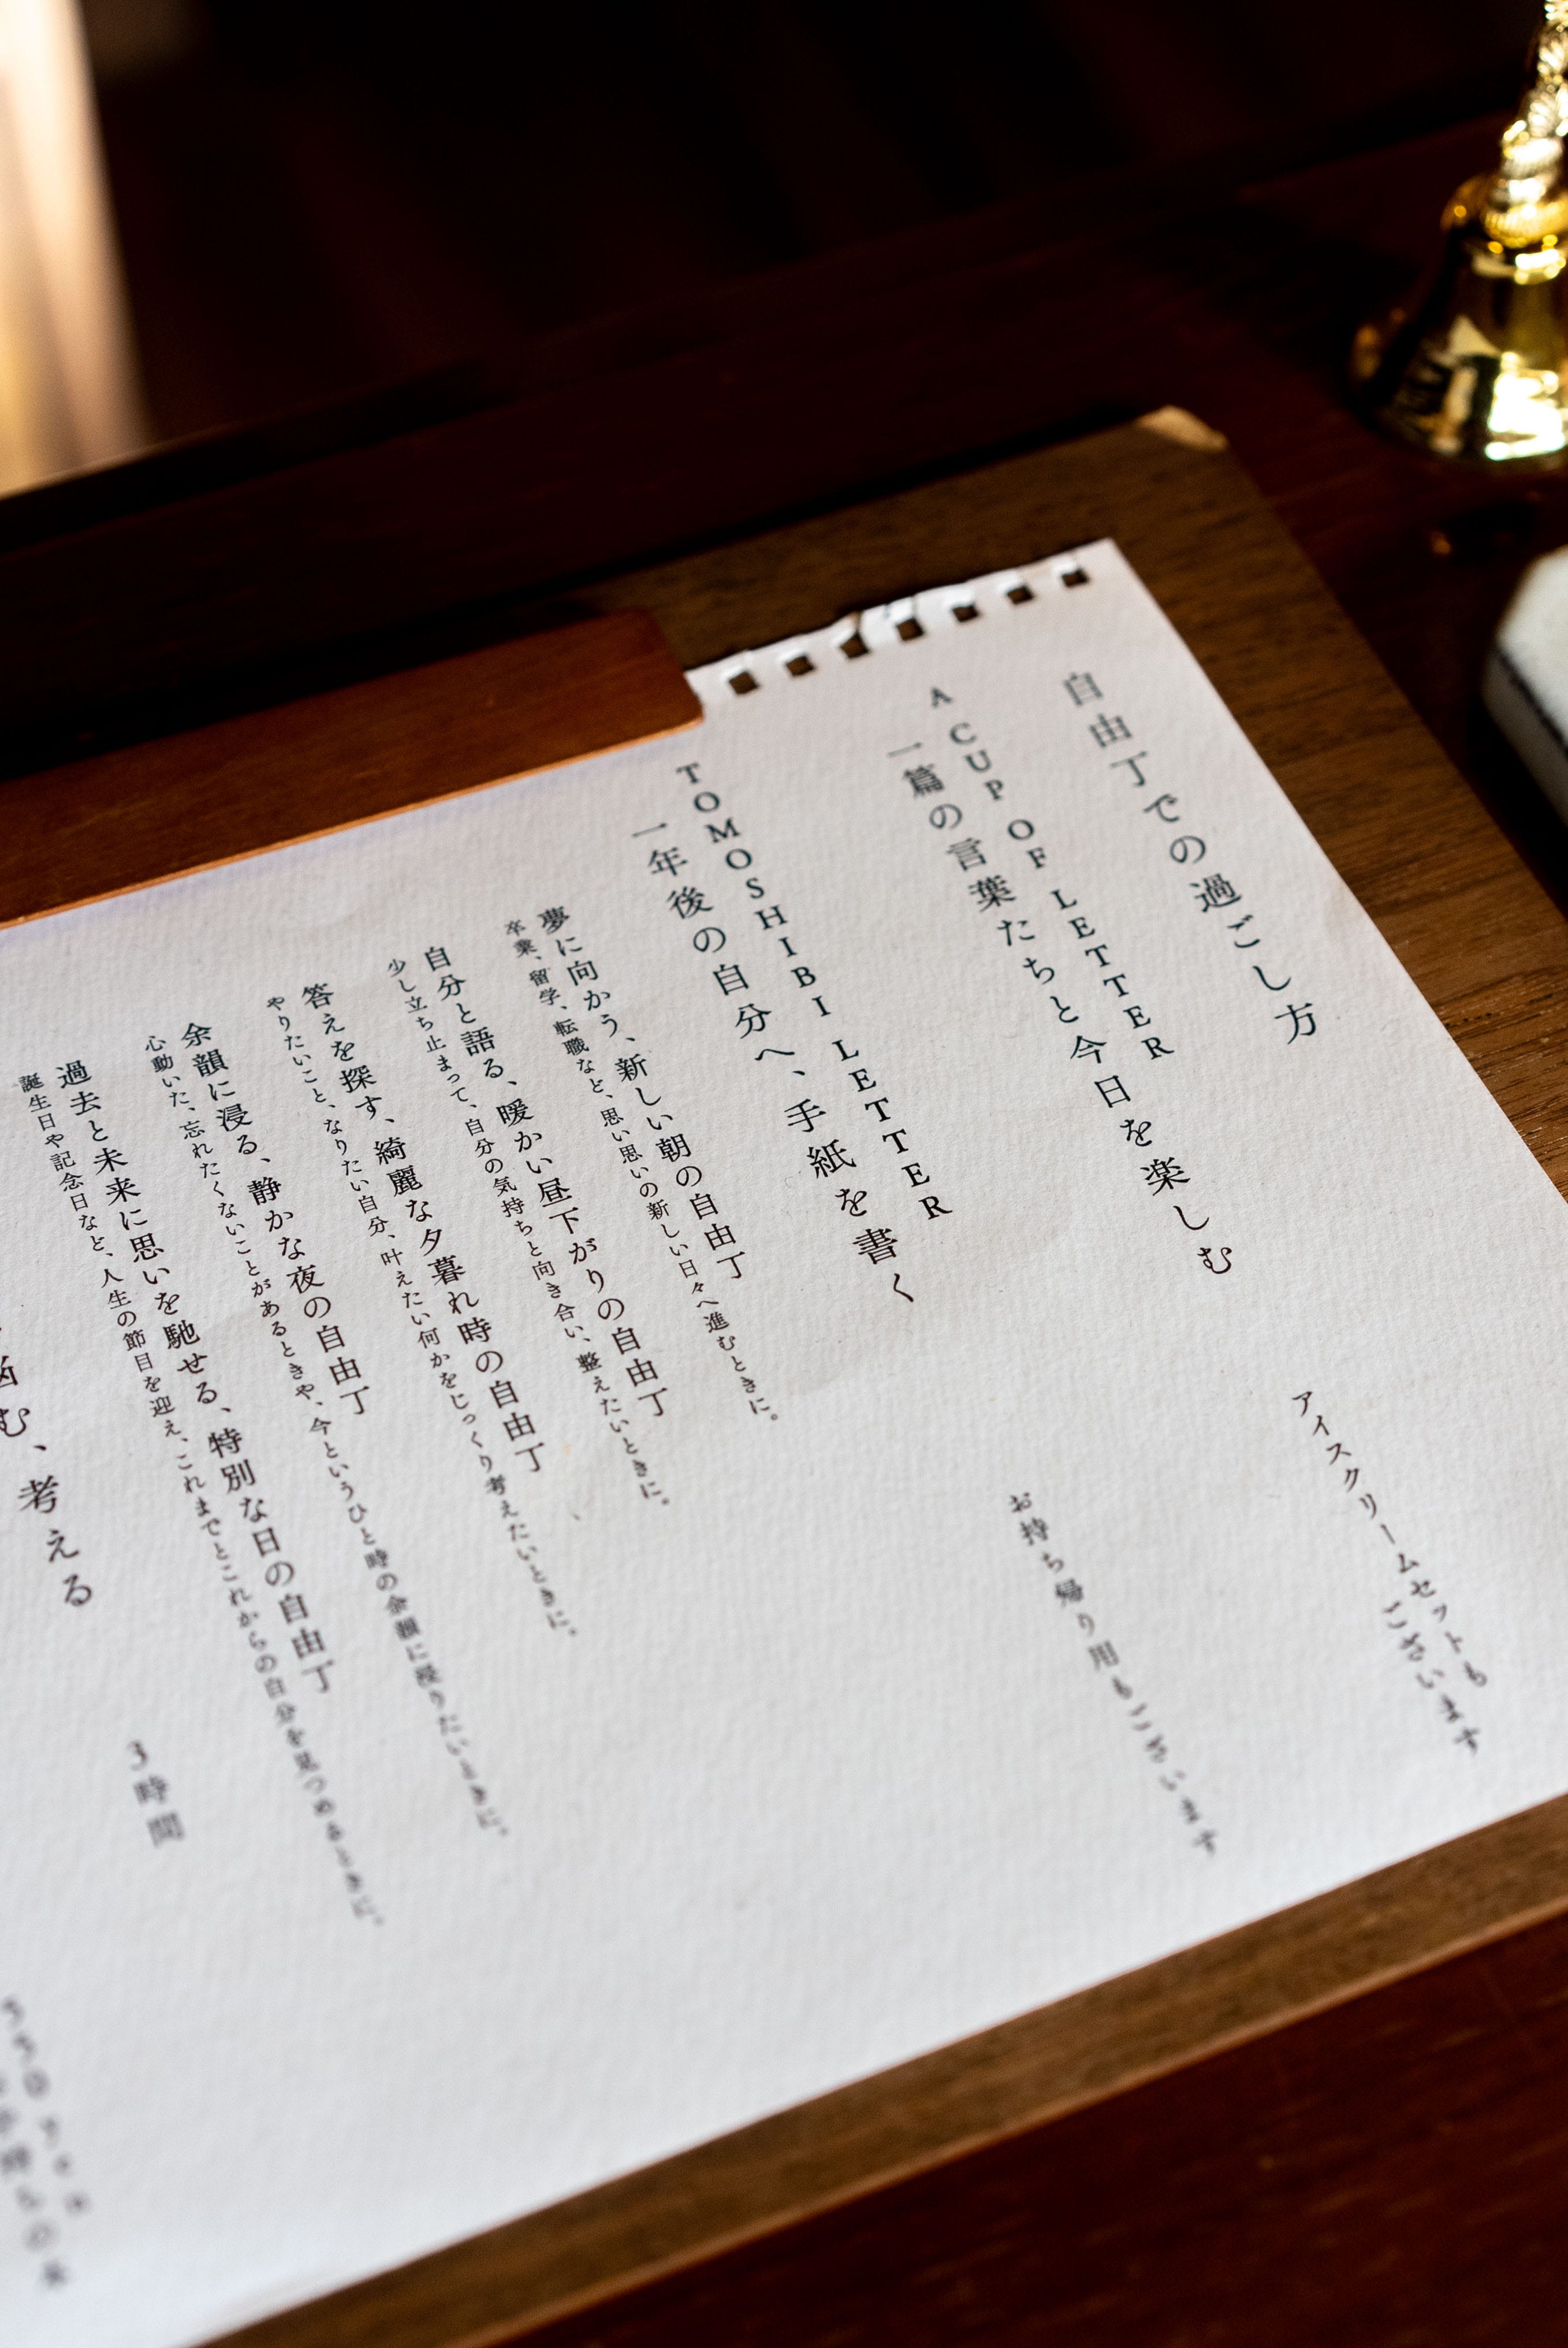 自由丁での過ごし方
A CUP OF LETTER
一篇の言葉たちと今日を楽しむ
アイスクリームセットも
ございます
お持ち帰り用もございます
TOMOSHIBI LETTER
一年後の自分へ、手紙を書く
夢に向かう、新しい朝の自由丁
卒業、留学、転職など、思い思いの新しい日々へ進むときに。
自分と語る、暖かい昼下がりの自由丁
少し立ち止まって、自分の気持ちと向き合い、整えたいときに。
答えを探す、綺麗な夕暮れ時の自由丁
やりたいこと、なりたい自分、叶えたい何かをじっくり考えたいときに。
余韻に浸る、静かな夜の自由丁
心動いた、忘れたくないことがあるときや、今というひと時の余韻に浸りたいときに。
過去と未来に思いを馳せる、特別な日の自由丁
誕生日や記念日など、人生の節目を迎え、これまでとこれからの自分を見つめるときに。
悩む、考える
3時間